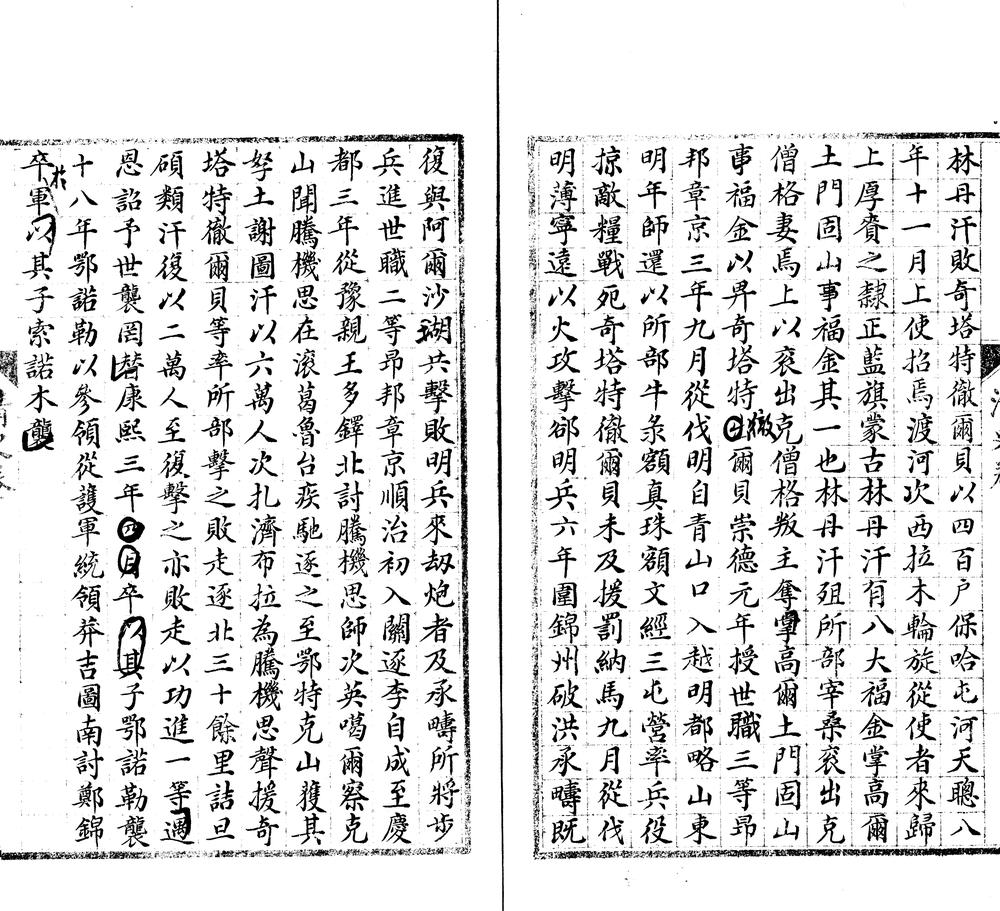 林丹汗敗奇塔特徹爾貝以四百戶保哈屯河天聰八
年十一月上使招焉渡河次西拉木輪旋從使者來歸
上厚賚之隸正藍旗蒙古林丹汗有八大福金掌高爾
土門固山事福金其一也林丹汗殂所部宰桑袞出克
僧格妻焉上以袞出克僧格叛主奪掌高爾土門固山
事福金以畀奇塔特徹爾貝崇德元年授世職三等昂
邦章京三年九月從伐明自青山口入越明都略山東
明年師還以所部牛彔額真珠額文經三屯營率兵役
掠敵糧戰死奇塔特徹爾貝未及援罰納馬九月從伐
明薄寧遠以火攻擊郤明兵六年圍錦州破洪承疇既
復與阿爾沙瑚共擊敗明兵來刼炮者及承疇所將步
兵進世職二等昂邦章京順治初入關逐李自成至慶
都三年從豫親王多鐸北討騰機思師次英噶爾察克
山聞騰機思在滾葛魯台疾馳逐之至鄂特克山獲其
孥土謝圖汗以六萬人次扎濟布拉為騰機思聲援奇
塔特徹爾貝等率所部擊之敗走逐北三十餘里詰旦
碩類汗復以二萬人至復擊之亦敗走以功進一等遇
恩詔予世襲罔替康熙三年四月卒以其子鄂諾勒襲
十八年鄂諾勒以參領從護軍統領莽吉圖南討鄭錦
卒於軍以其子索諾木襲